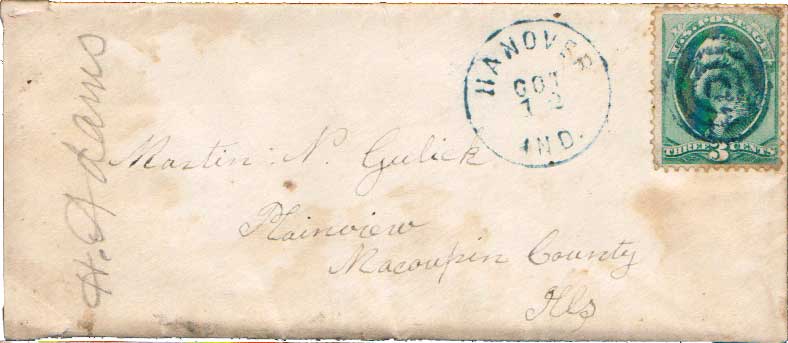 H. Adams
HANOVER
OCT
IND.
U.S. POSTAGE
THREE 3 CENTS
Martin N. Gulick
Plainview
Macoupin County
Ills